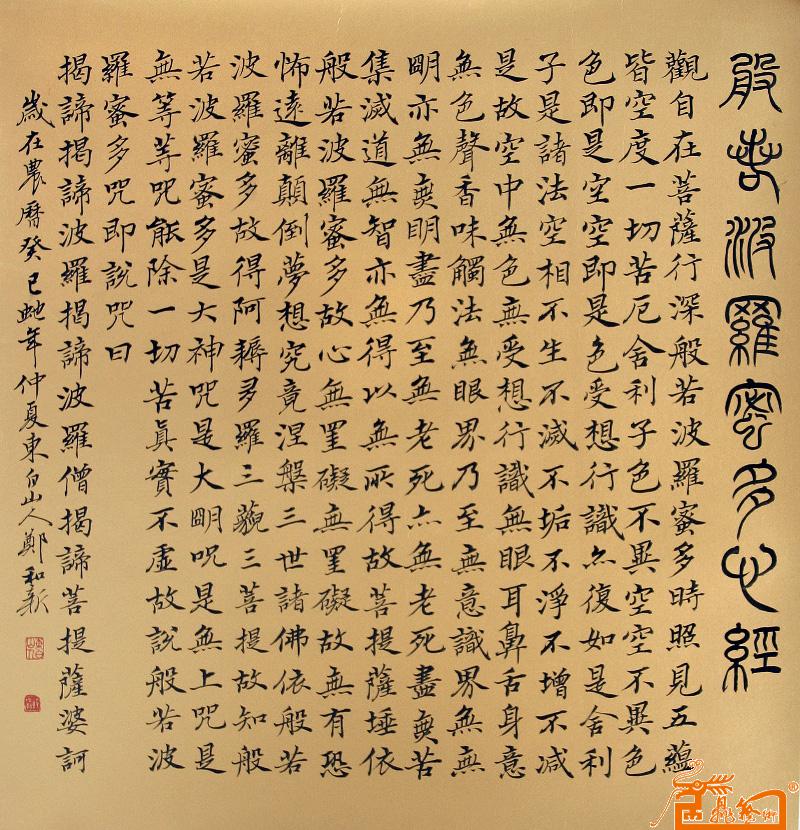 般若波羅蜜多心經
觀自在菩薩行深般若波羅蜜多時照見五蘊
皆空度一切苦厄舍利子色不異空空不異色
色即是空空即是色受想行識亦復如是舍利
子是諸法空相不生不滅不垢不淨不增不減
是故空中無色無受想行識無眼耳鼻舌身意
無色聲香味觸法無眼界乃至無意識界無無
明亦無無明盡乃至無老死亦無老死盡無苦
集滅道無智亦無得以無所得故菩提薩埵依
般若波羅蜜多故心無罣礙無罣礙故無有恐
怖遠離顛倒夢想究竟涅槃三世諸佛依般若
波羅蜜多故得阿耨多羅三藐三菩提故知般
若波羅蜜多是大神咒是大明咒是無上咒是
無等等咒能除一切苦眞實不虛故說般若波
羅蜜多咒即說咒曰
揭諦揭諦波羅揭諦波羅僧揭諦菩提薩婆訶
歲在農曆癸巳虵年仲夏東白山人鄭和新